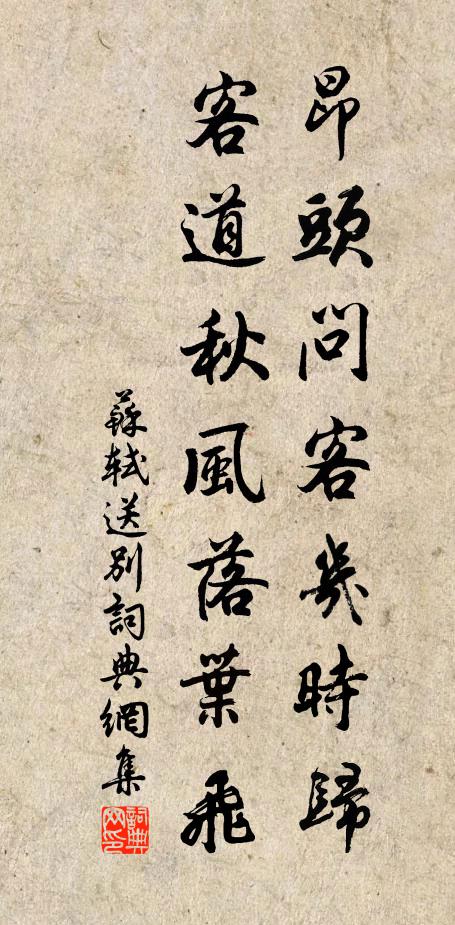 昂頭問客幾時歸
客道秋風落葉飛
蘇軾送別詞典網集
詞典網印